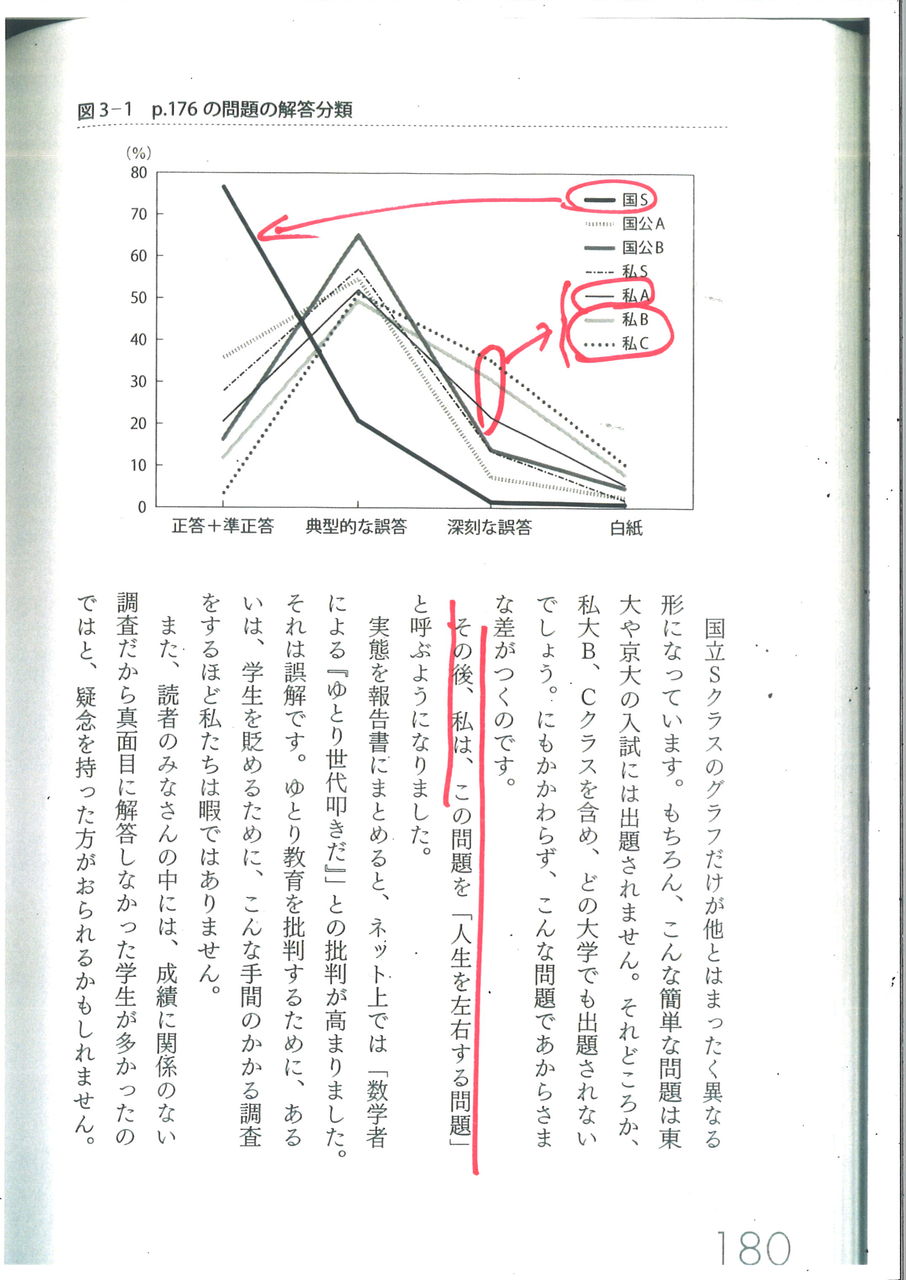 図3-1 p.176の問題の解答分類
(%)
80
70
60
50
40
30
20
10
0
国S
国公A
国公B
私S
私A
私B
私C
正答+準正答 典型的な誤答 深刻な誤答 白紙
国立Sクラスのグラフだけが他とはまったく異なる
形になっています。もちろん、こんな簡単な問題は東
大や京大の入試には出題されません。それどころか、
私大B、Cクラスを含め、どの大学でも出題されない
でしょう。にもかかわらず、こんな問題であからさま
な差がつくのです。
その後、私は、この問題を「人生を左右する問題」
と呼ぶようになりました。
実態を報告書にまとめると、ネット上では「数学者
による『ゆとり世代叩きだ』」との批判が高まりました。
それは誤解です。ゆとり教育を批判するために、ある
いは、学生を貶めるために、こんな手間のかかる調査
をするほど私たちは暇ではありません。
また、読者のみなさんの中には、成績に関係のない
調査だから真面目に解答しなかった学生が多かったの
ではと、疑念を持った方がおられるかもしれません。
180